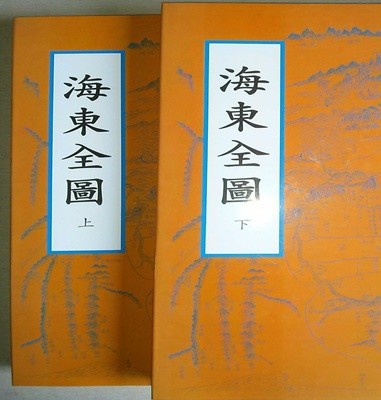 海東全圖
上
海東全圖
下